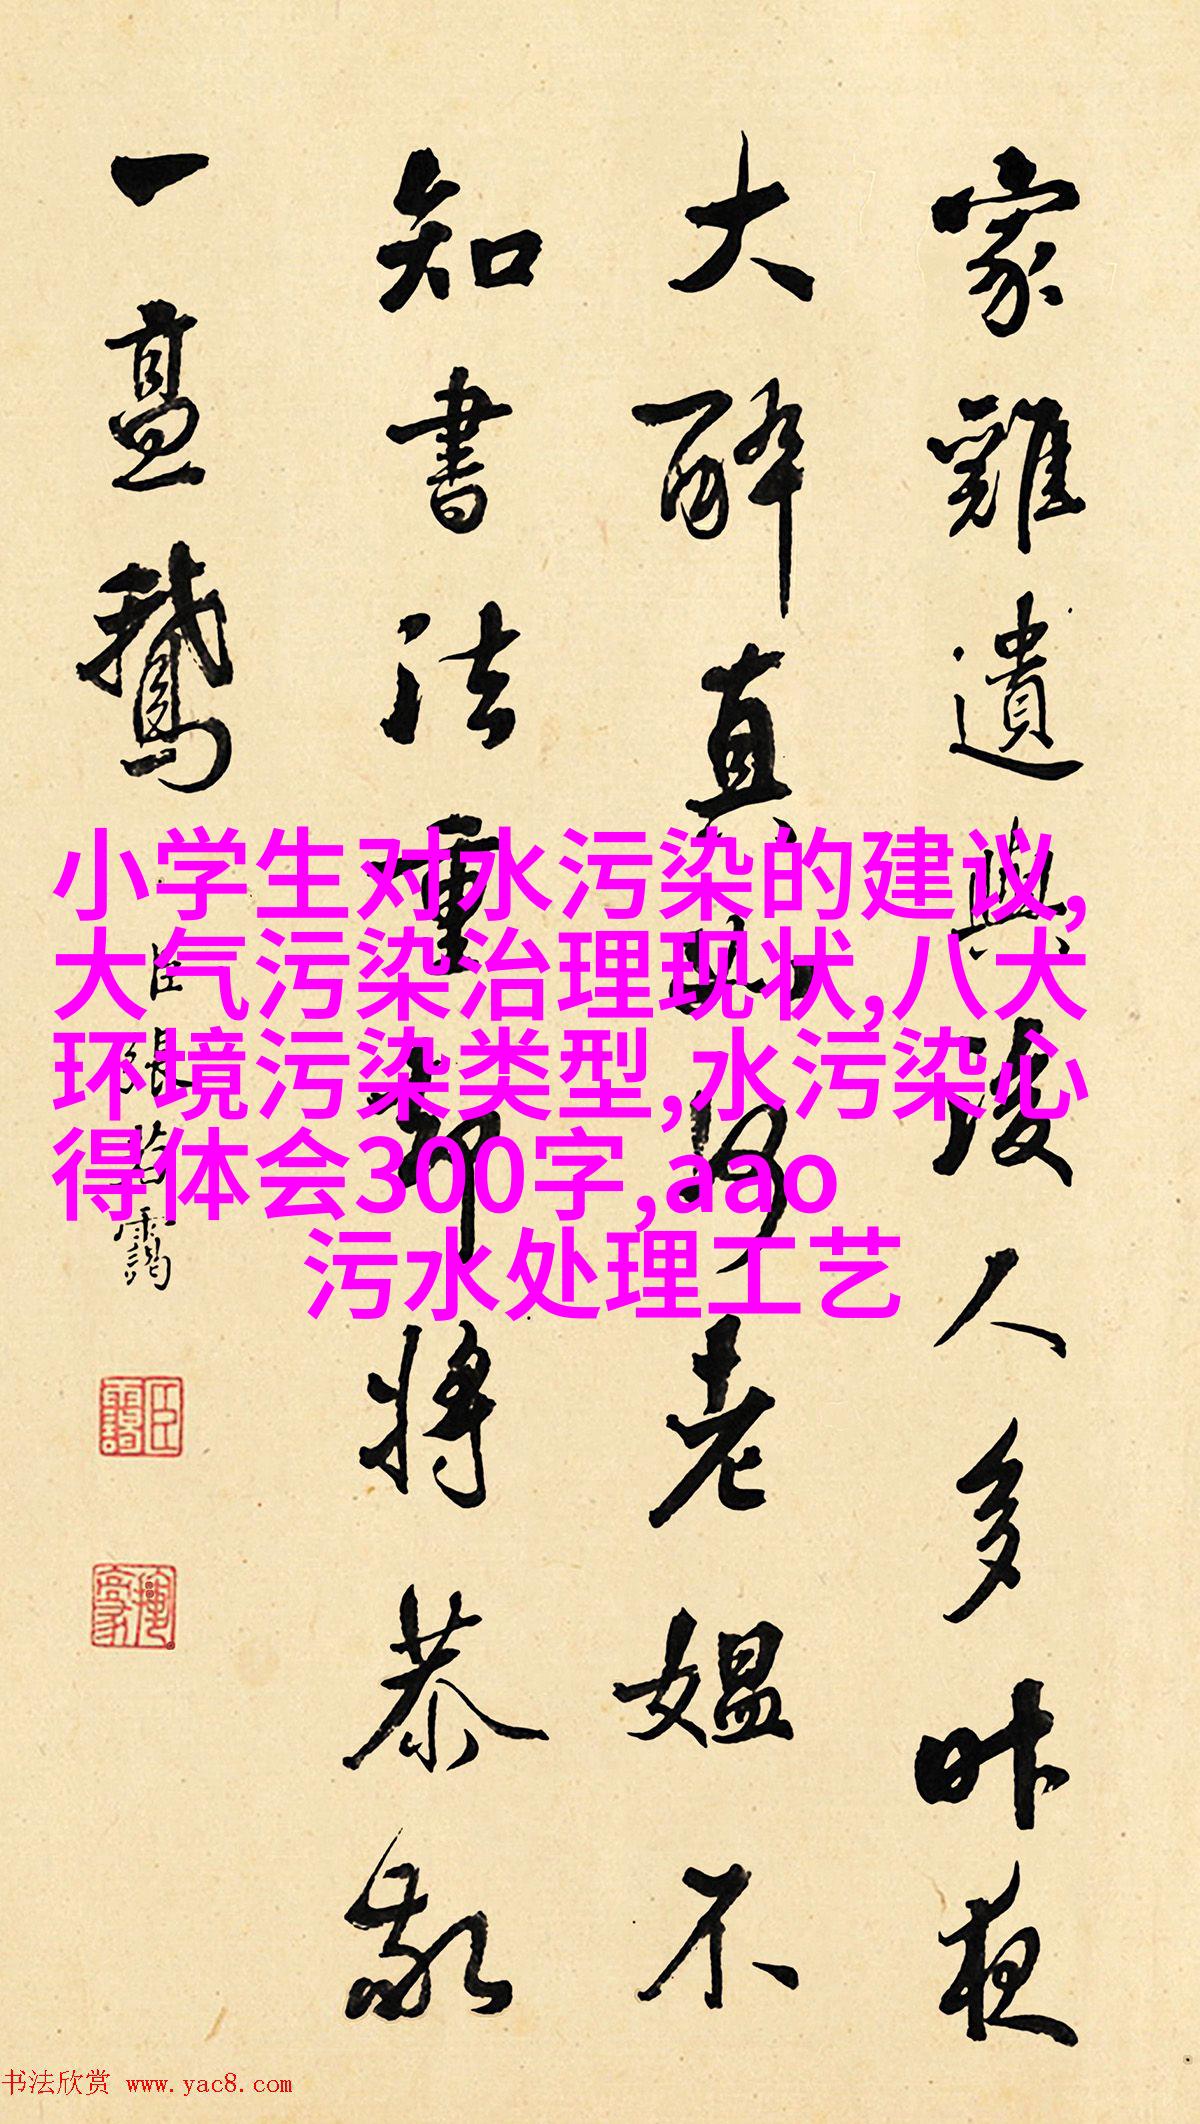 家雞遺與凌人多昨夜
大醉真如老媼不
知書法重將恭敬
一鵝
臣張若靄
小学生对水污染的建议,
大气污染治理现状,八大
环境污染类型,水污染心
得体会300字,aao
污水处理工艺
书法欣赏 www.yac8.com